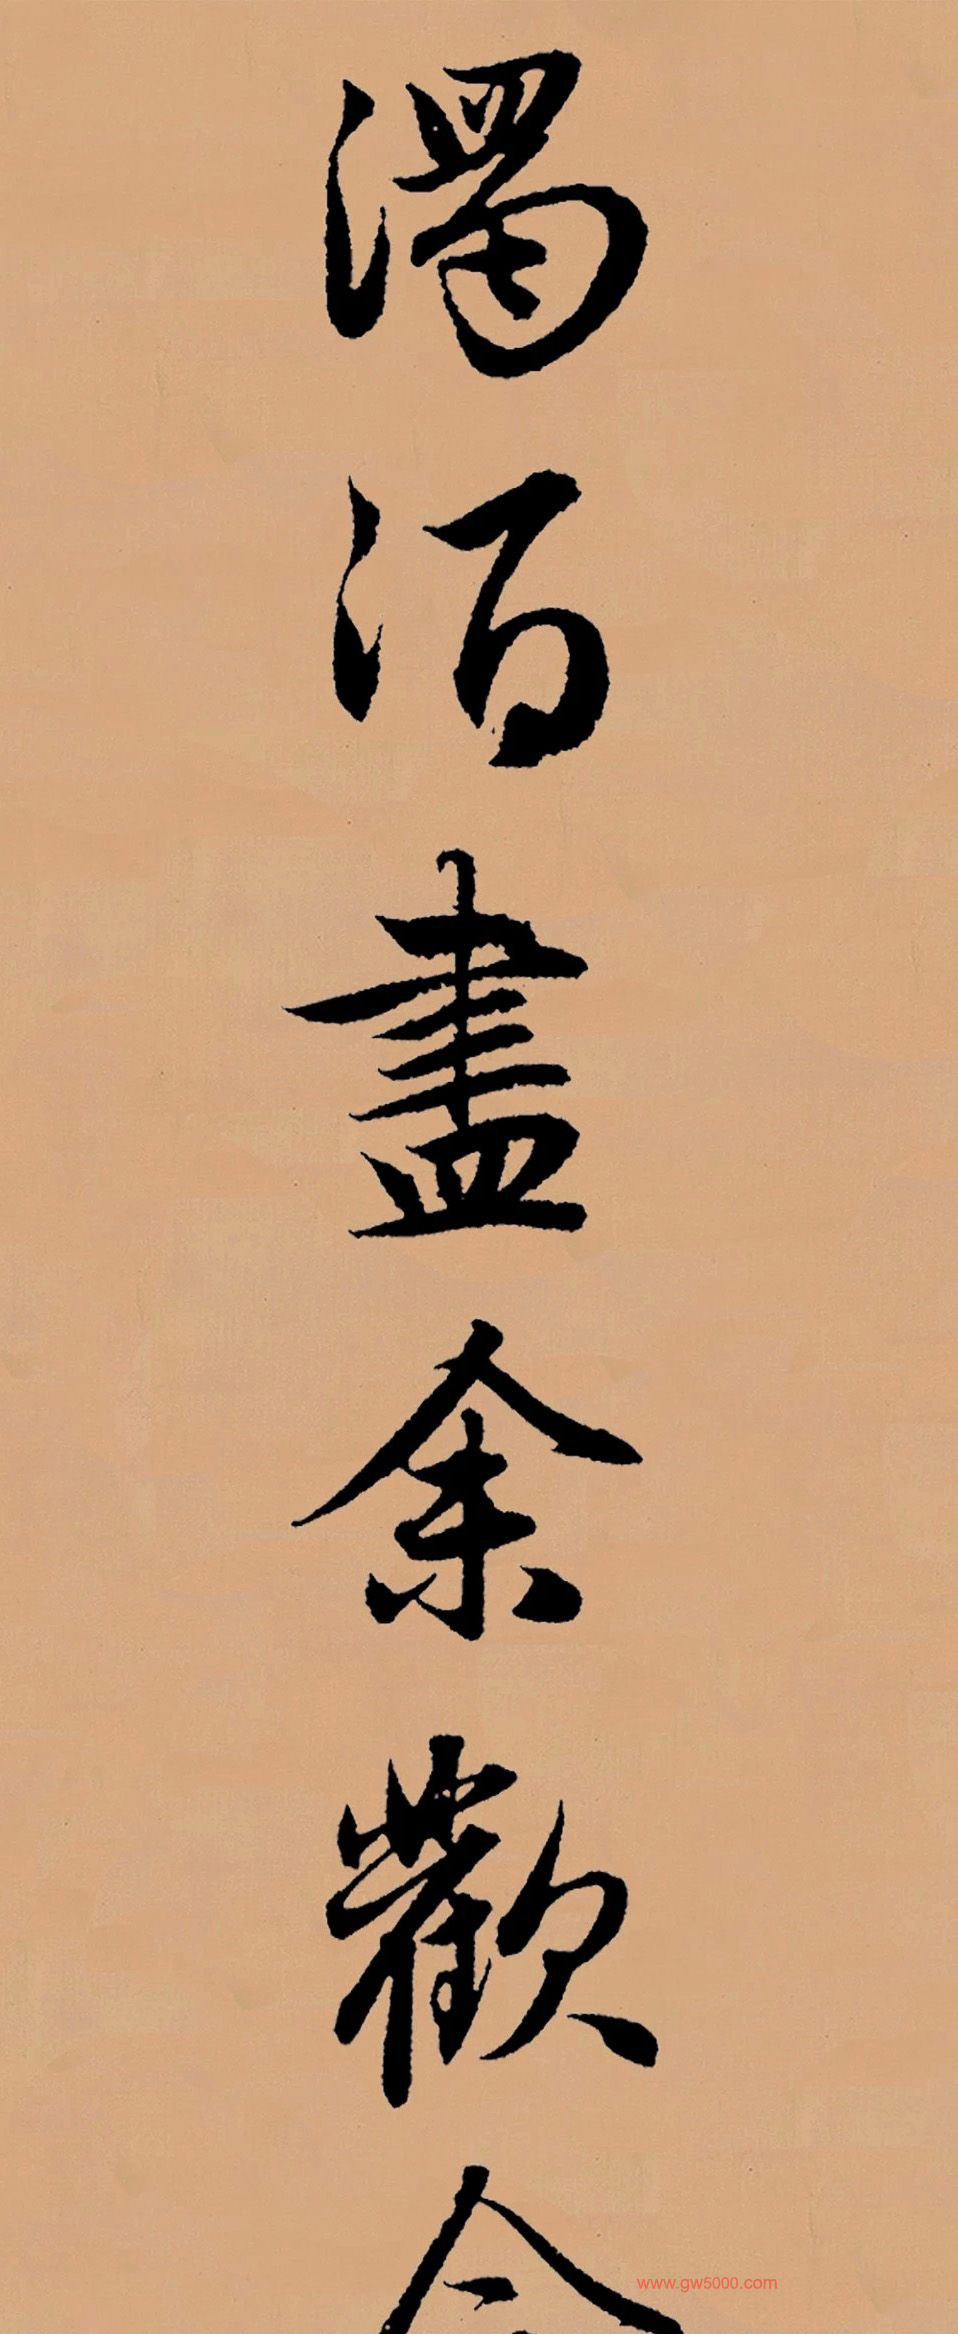 濁酒盡余歡今
www.gw5000.com